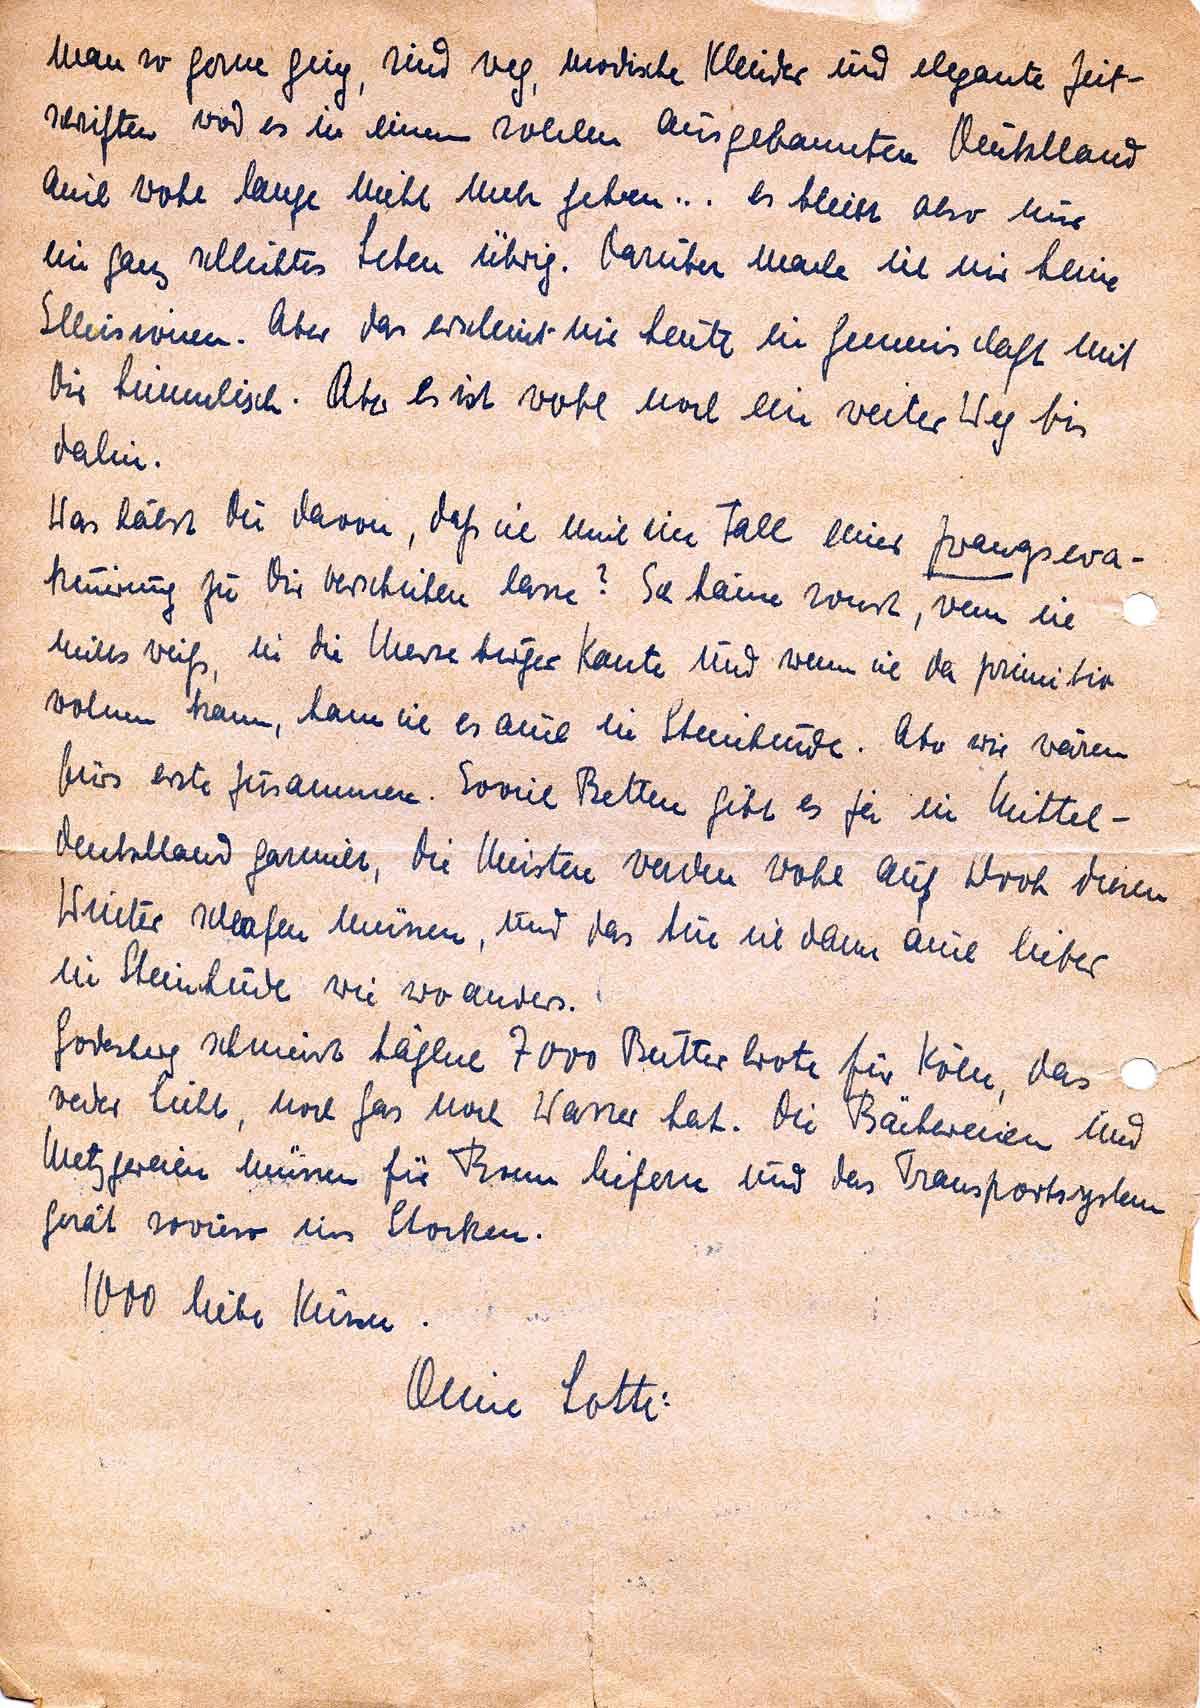 man so gerne ging, sind weg, modische Kleider und elegante Zeit-
schriften wird es in einem solchen ausgebannten Deutschland
auch wohl lange nicht mehr geben... es bleibt also nur
ein ganz schlichtes Leben übrig. Darüber mache ich mir keine
Illusionen. Aber das erscheint mir heute in Gemeinschaft mit
Dir himmlisch. Aber es ist wohl noch ein weiter Weg bis
dahin.
Was hälst Du davon, daß ich mich im Fall einer Zwangseva-
kuierung zu Dir verschieben lasse? Ich käme sonst, wenn ich
nichts weiß, in die Merseburger Kante und wenn ich da primitiv
wohnen kann, kann ich es auch in Steinhude. Aber wir wären
fürs erste zusammen. Soviel Betten gibt es ja in Mittel-
deutschland garnicht, die Meisten werden wohl auf Stroh diesen
Winter schlafen müssen, und das tue ich dann auch lieber
in Steinhude wie wo anders.
Godesberg schmiert täglich 7000 Butterbrote für Köln, das
weder Licht, noch Gas noch Wasser hat. Die Bäckereien und
Metzgereien müssen für Bonn liefern und das Transportsystem
gerät sowieso ins Stocken.
1000 liebe Küsse.
Deine Lotte.